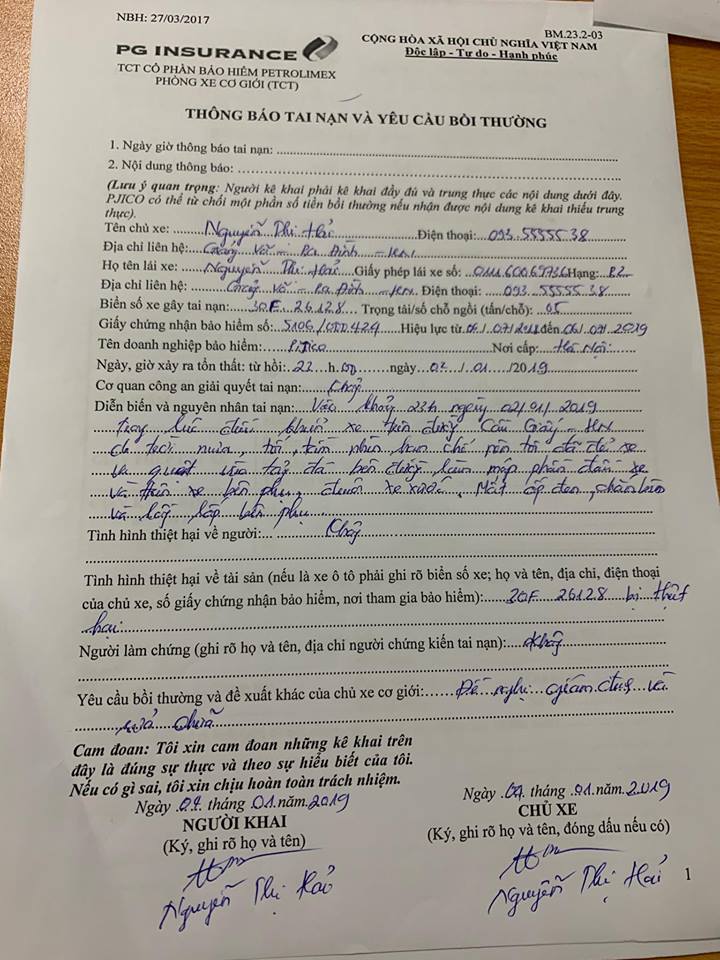 NBH: 27/03/2017
BM.23.2-03
PG INSURANCE
CỘNG HÒA XÃ HỘI CHỦ NGHĨA VIỆT NAM
Độc lập - Tự do - Hạnh phúc
TCT CỔ PHẦN BẢO HIỂM PETROLIMEX
PHÒNG XE CƠ GIỚI (TCT)
THÔNG BÁO TAI NẠN VÀ YÊU CẦU BỒI THƯỜNG
1. Ngày giờ thông báo tai nạn:
2. Nội dung thông báo:
(Lưu ý quan trọng: Người kê khai phải kê khai đầy đủ và trung thực các nội dung dưới đây.
PJICO có thể từ chối một phần số tiền bồi thường nếu nhận được nội dung kê khai thiếu trung
thực).
Tên chủ xe: Nguyễn Thị Hải Điện thoại: 093.5555538
Địa chỉ liên hệ: Giảng Võ - Ba Đình - HN
Họ tên lái xe: Nguyễn Thị Hải Giấy phép lái xe số: Hạng: B2
Địa chỉ liên hệ: Giảng Võ - Ba Đình - HN. Điện thoại: 093.5555538
Biển số xe gây tai nạn: 30E 26128 Trọng tải/số chỗ ngồi (tấn/chỗ): 05
Giấy chứng nhận bảo hiểm số: Hiệu lực từ đến 2019
Tên doanh nghiệp bảo hiểm: Pjico Nơi cấp: Hà Nội
Ngày, giờ xảy ra tổn thất: từ hồi: 22 h 00 ngày 02/01/2019
Cơ quan công an giải quyết tai nạn: Không
Diễn biến và nguyên nhân tai nạn: Vào khoảng 23h ngày 02/01/2019
trong lúc điều khiển xe trên đường Cầu Giấy - HN
do trời mưa, tối, tầm nhìn hạn chế nên tôi đã để xe
va quệt vào tảng đá bên đường làm móp phần đầu xe
và thân xe bên phụ, đuôi xe xước, Mất ốp đèn,
và lốp bên phụ
Tình hình thiệt hại về người: Không
Tình hình thiệt hại về tài sản (nếu là xe ô tô phải ghi rõ biển số xe; họ và tên, địa chỉ, điện thoại
của chủ xe, số giấy chứng nhận bảo hiểm, nơi tham gia bảo hiểm): 26128 bị thiệt
hại
Người làm chứng (ghi rõ họ và tên, địa chỉ người chứng kiến tai nạn): Không
Yêu cầu bồi thường và đề xuất khác của chủ xe cơ giới: Đề nghị giám định và
sửa chữa
Cam đoan: Tôi xin cam đoan những kê khai trên
đây là đúng sự thực và theo sự hiểu biết của tôi.
Nếu có gì sai, tôi xin chịu hoàn toàn trách nhiệm.
Ngày tháng 01 năm 2019
NGƯỜI KHAI
(Ký, ghi rõ họ và tên)
Nguyễn Thị Hải
Ngày tháng 01 năm 2019
CHỦ XE
(Ký, ghi rõ họ và tên, đóng dấu nếu có)
Nguyễn Thị Hải
1